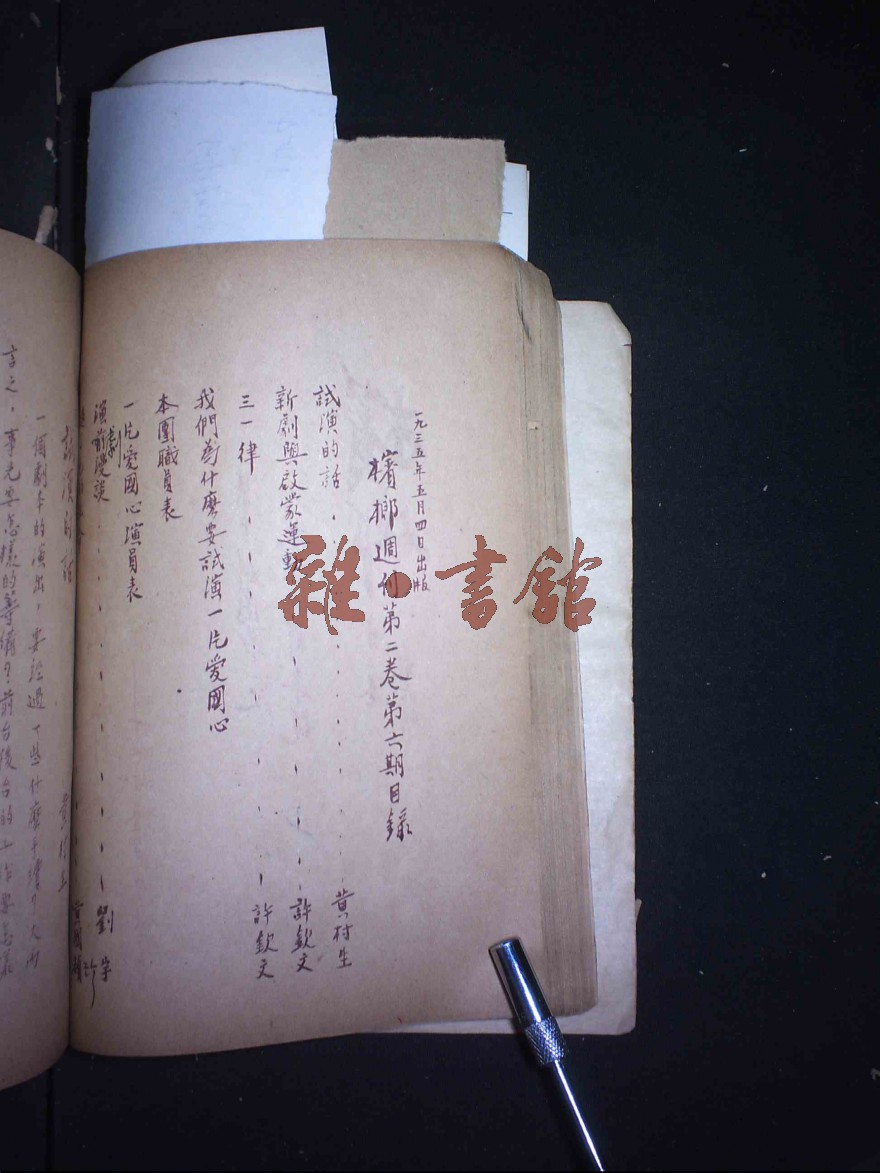 一九三五年五月四日出版
檳榔週刊第二卷第六期目錄
試演的話 黃村生
新劇與啟蒙運動 許欽文
三一律 許欽文
我們為什麼要試演一片愛國心
本團職員表
一片愛國心演員表
演劇前漫談 劉宇
試演的話 黃村生
一個劇本的演出，要經過一些什麼手續？大而
言之，事先要怎樣的籌備？前台後台的工作要怎樣
雜·書館